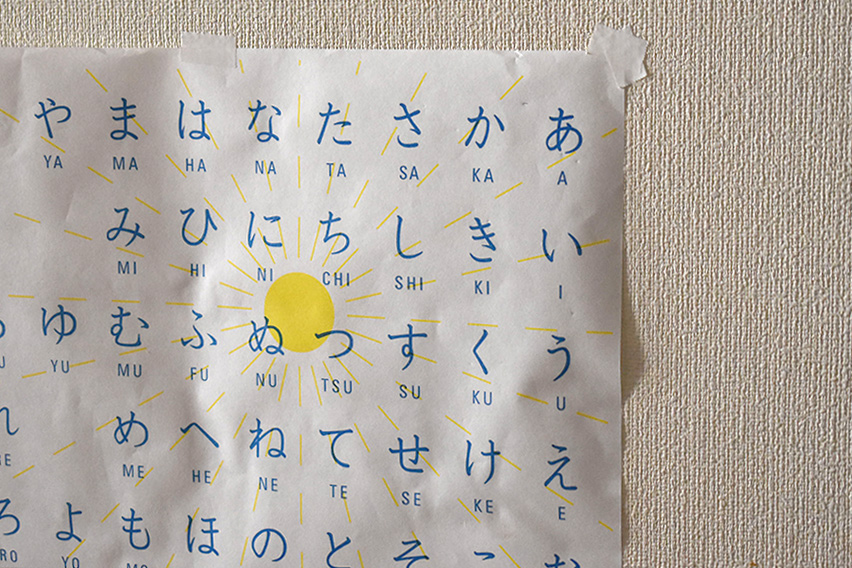 や ま は な た さ か あ
YA MA HA NA TA SA KA A
み ひ に ち し き い
MI HI NI CHI SHI KI I
ゆ む ふ ぬ つ す く う
YU MU FU NU TSU SU KU U
れ め へ ね て せ け え
ME HE NE TE SE KE E
ろ よ も ほ の と そ
RO YO MO